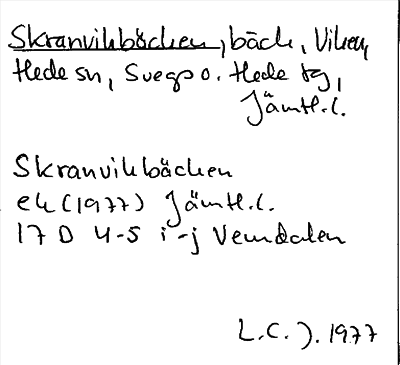 Skranvikbäcken, bäck, Viken,
Hede sn, Svegs o. Hede tg,
Jämtl.l.
Skranvikbäcken
ek (1977) Jämtl.l.
17 D 4-5 i-j Vemdalen
L.C.J. 1977